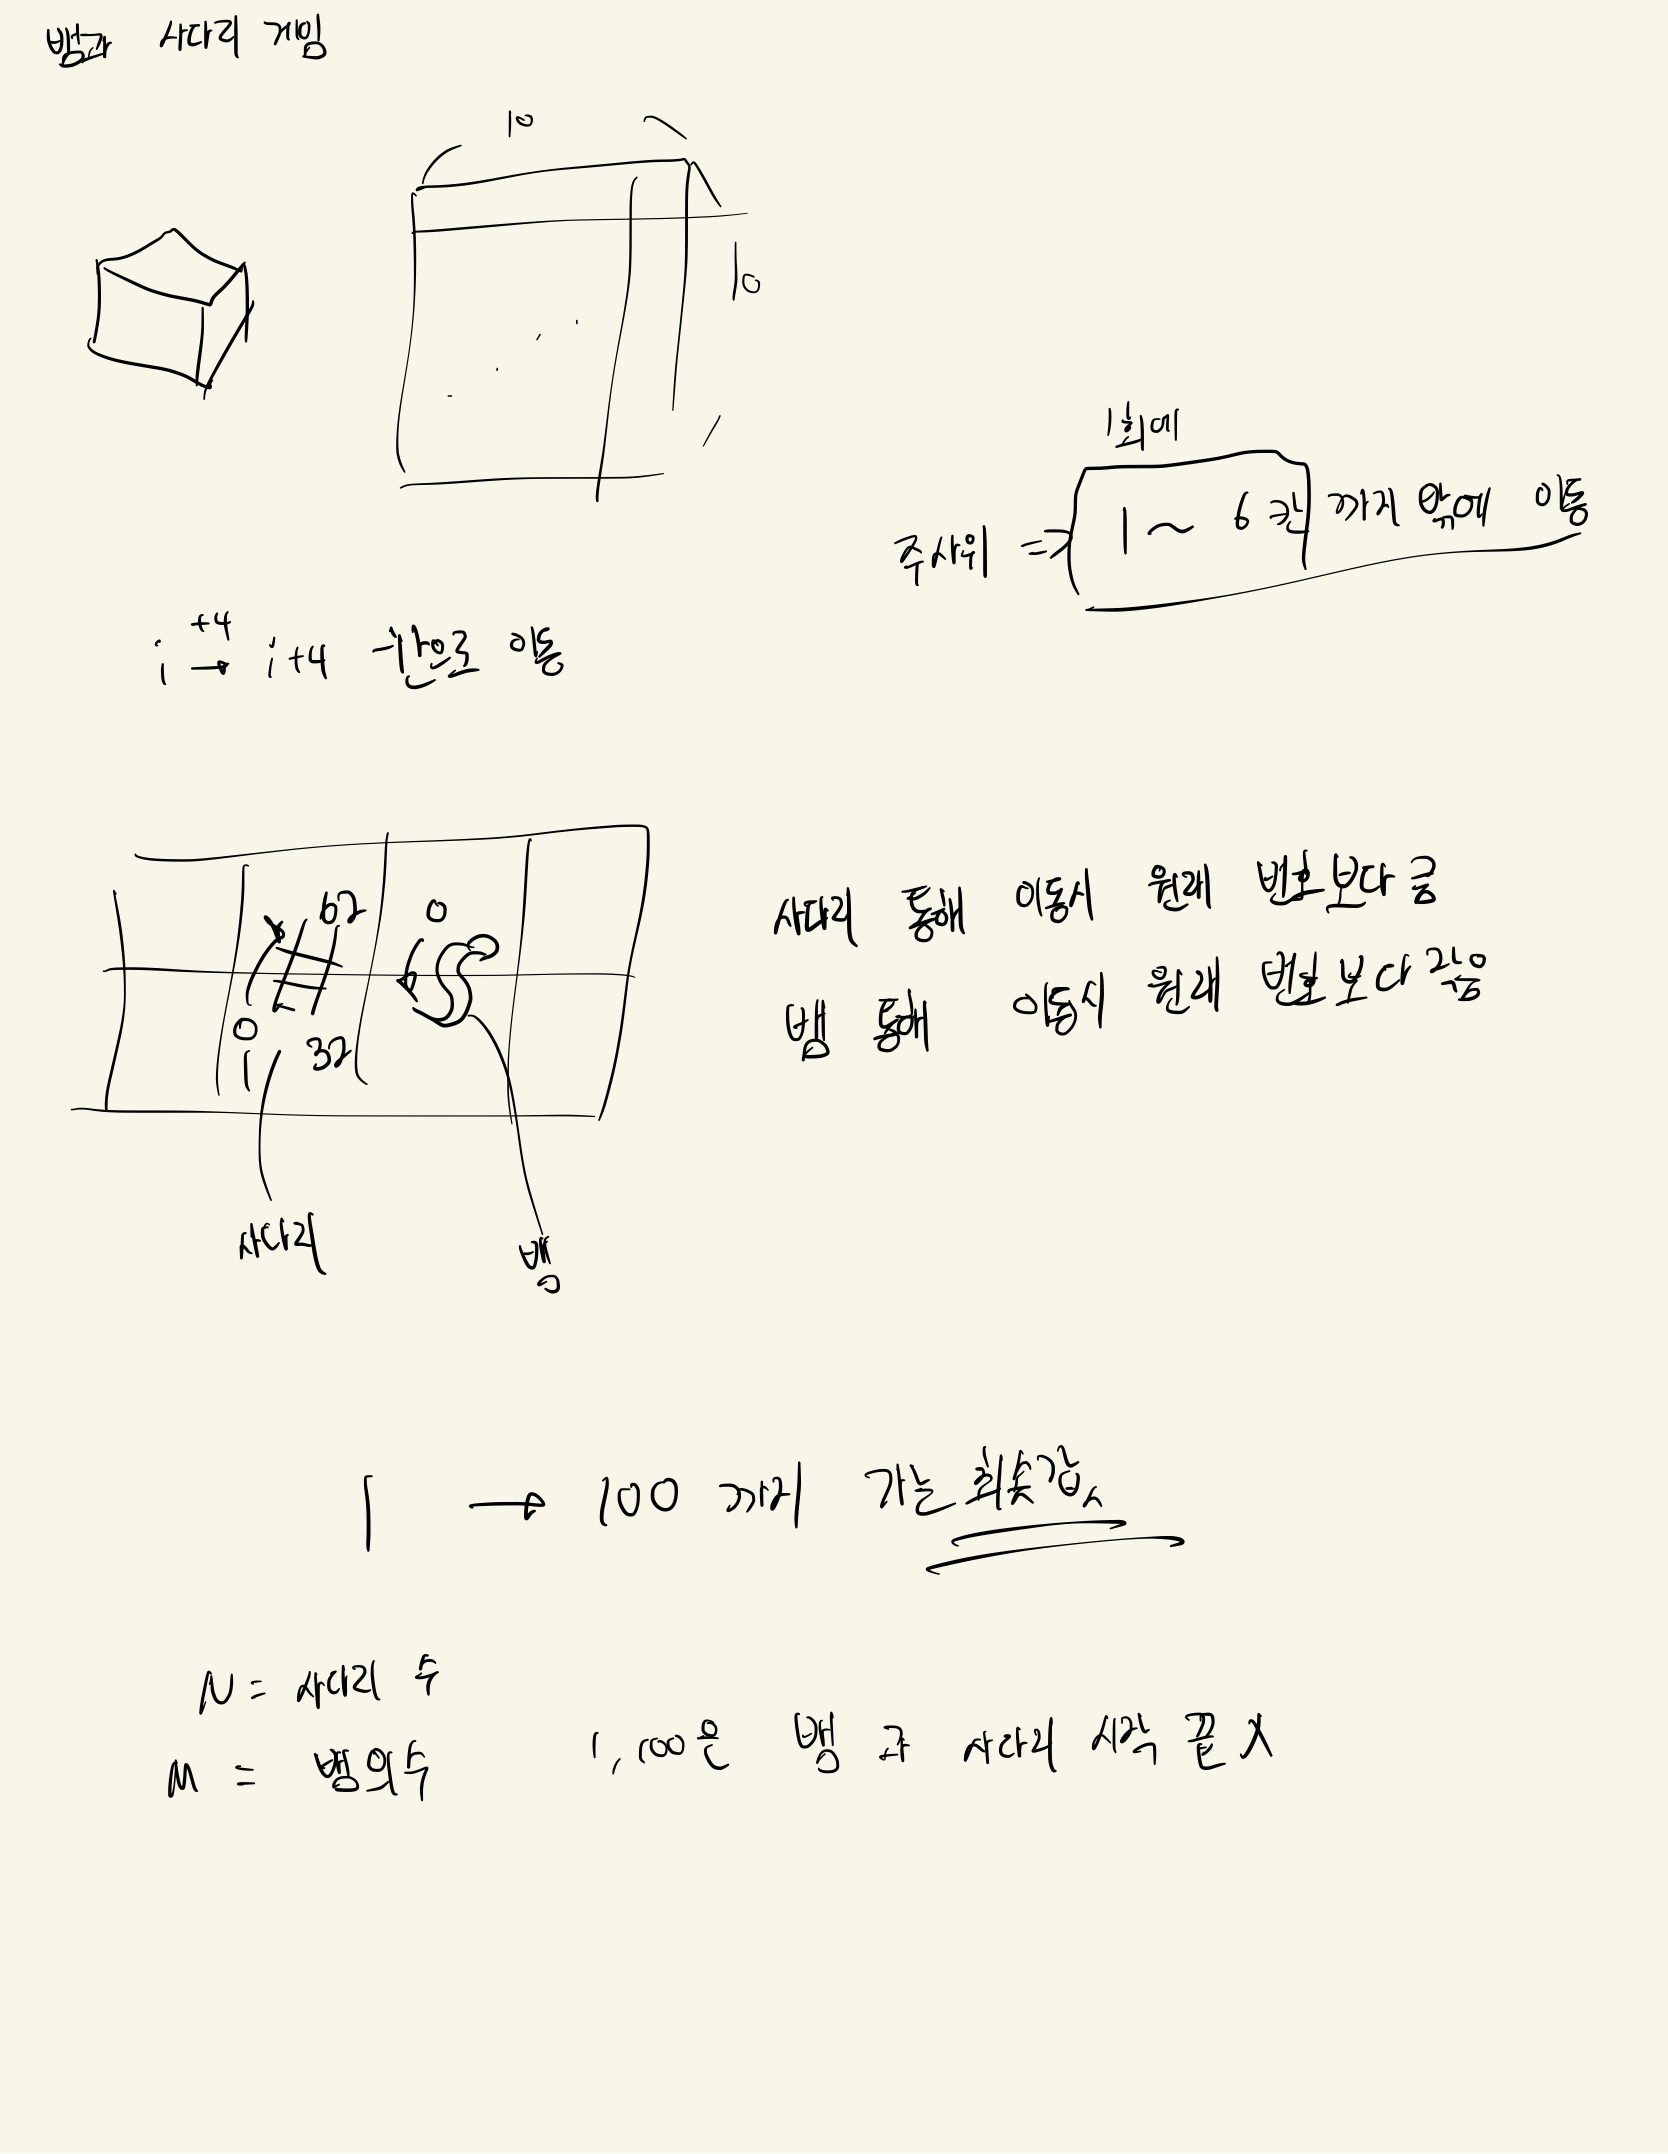 뱀과 사다리 게임
10
10
1회에
주사위 => 1 ~ 6칸 까지 밖에 이동
+4
i → i+4 칸으로 이동
62
0
0
1
32
사다리 통해 이동시 원래 번호보다 큼
뱀 통해 이동시 원래 번호보다 작음
사다리
뱀
1 → 100 까지 가는 최솟값
N = 사다리 수
M = 뱀의수
1, 100은 뱀과 사다리 시작 끝 X